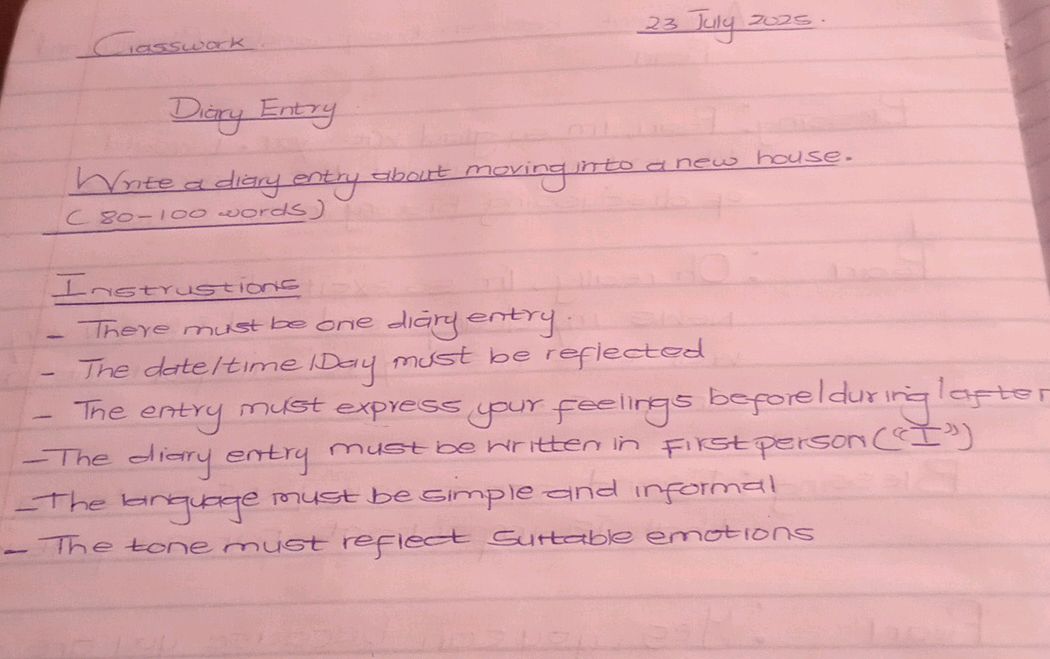 23 July 2025.
Classwork
Diary Entry
Write a diary entry about moving into a new house.
(80-100 words)
Instrustions
- There must be one diary entry.
- The date/time/Day must be reflected
- The entry must express your feelings before/during/after
- The diary entry must be written in First person ("I")
- The language must be simple and informal
- The tone must reflect suitable emotions